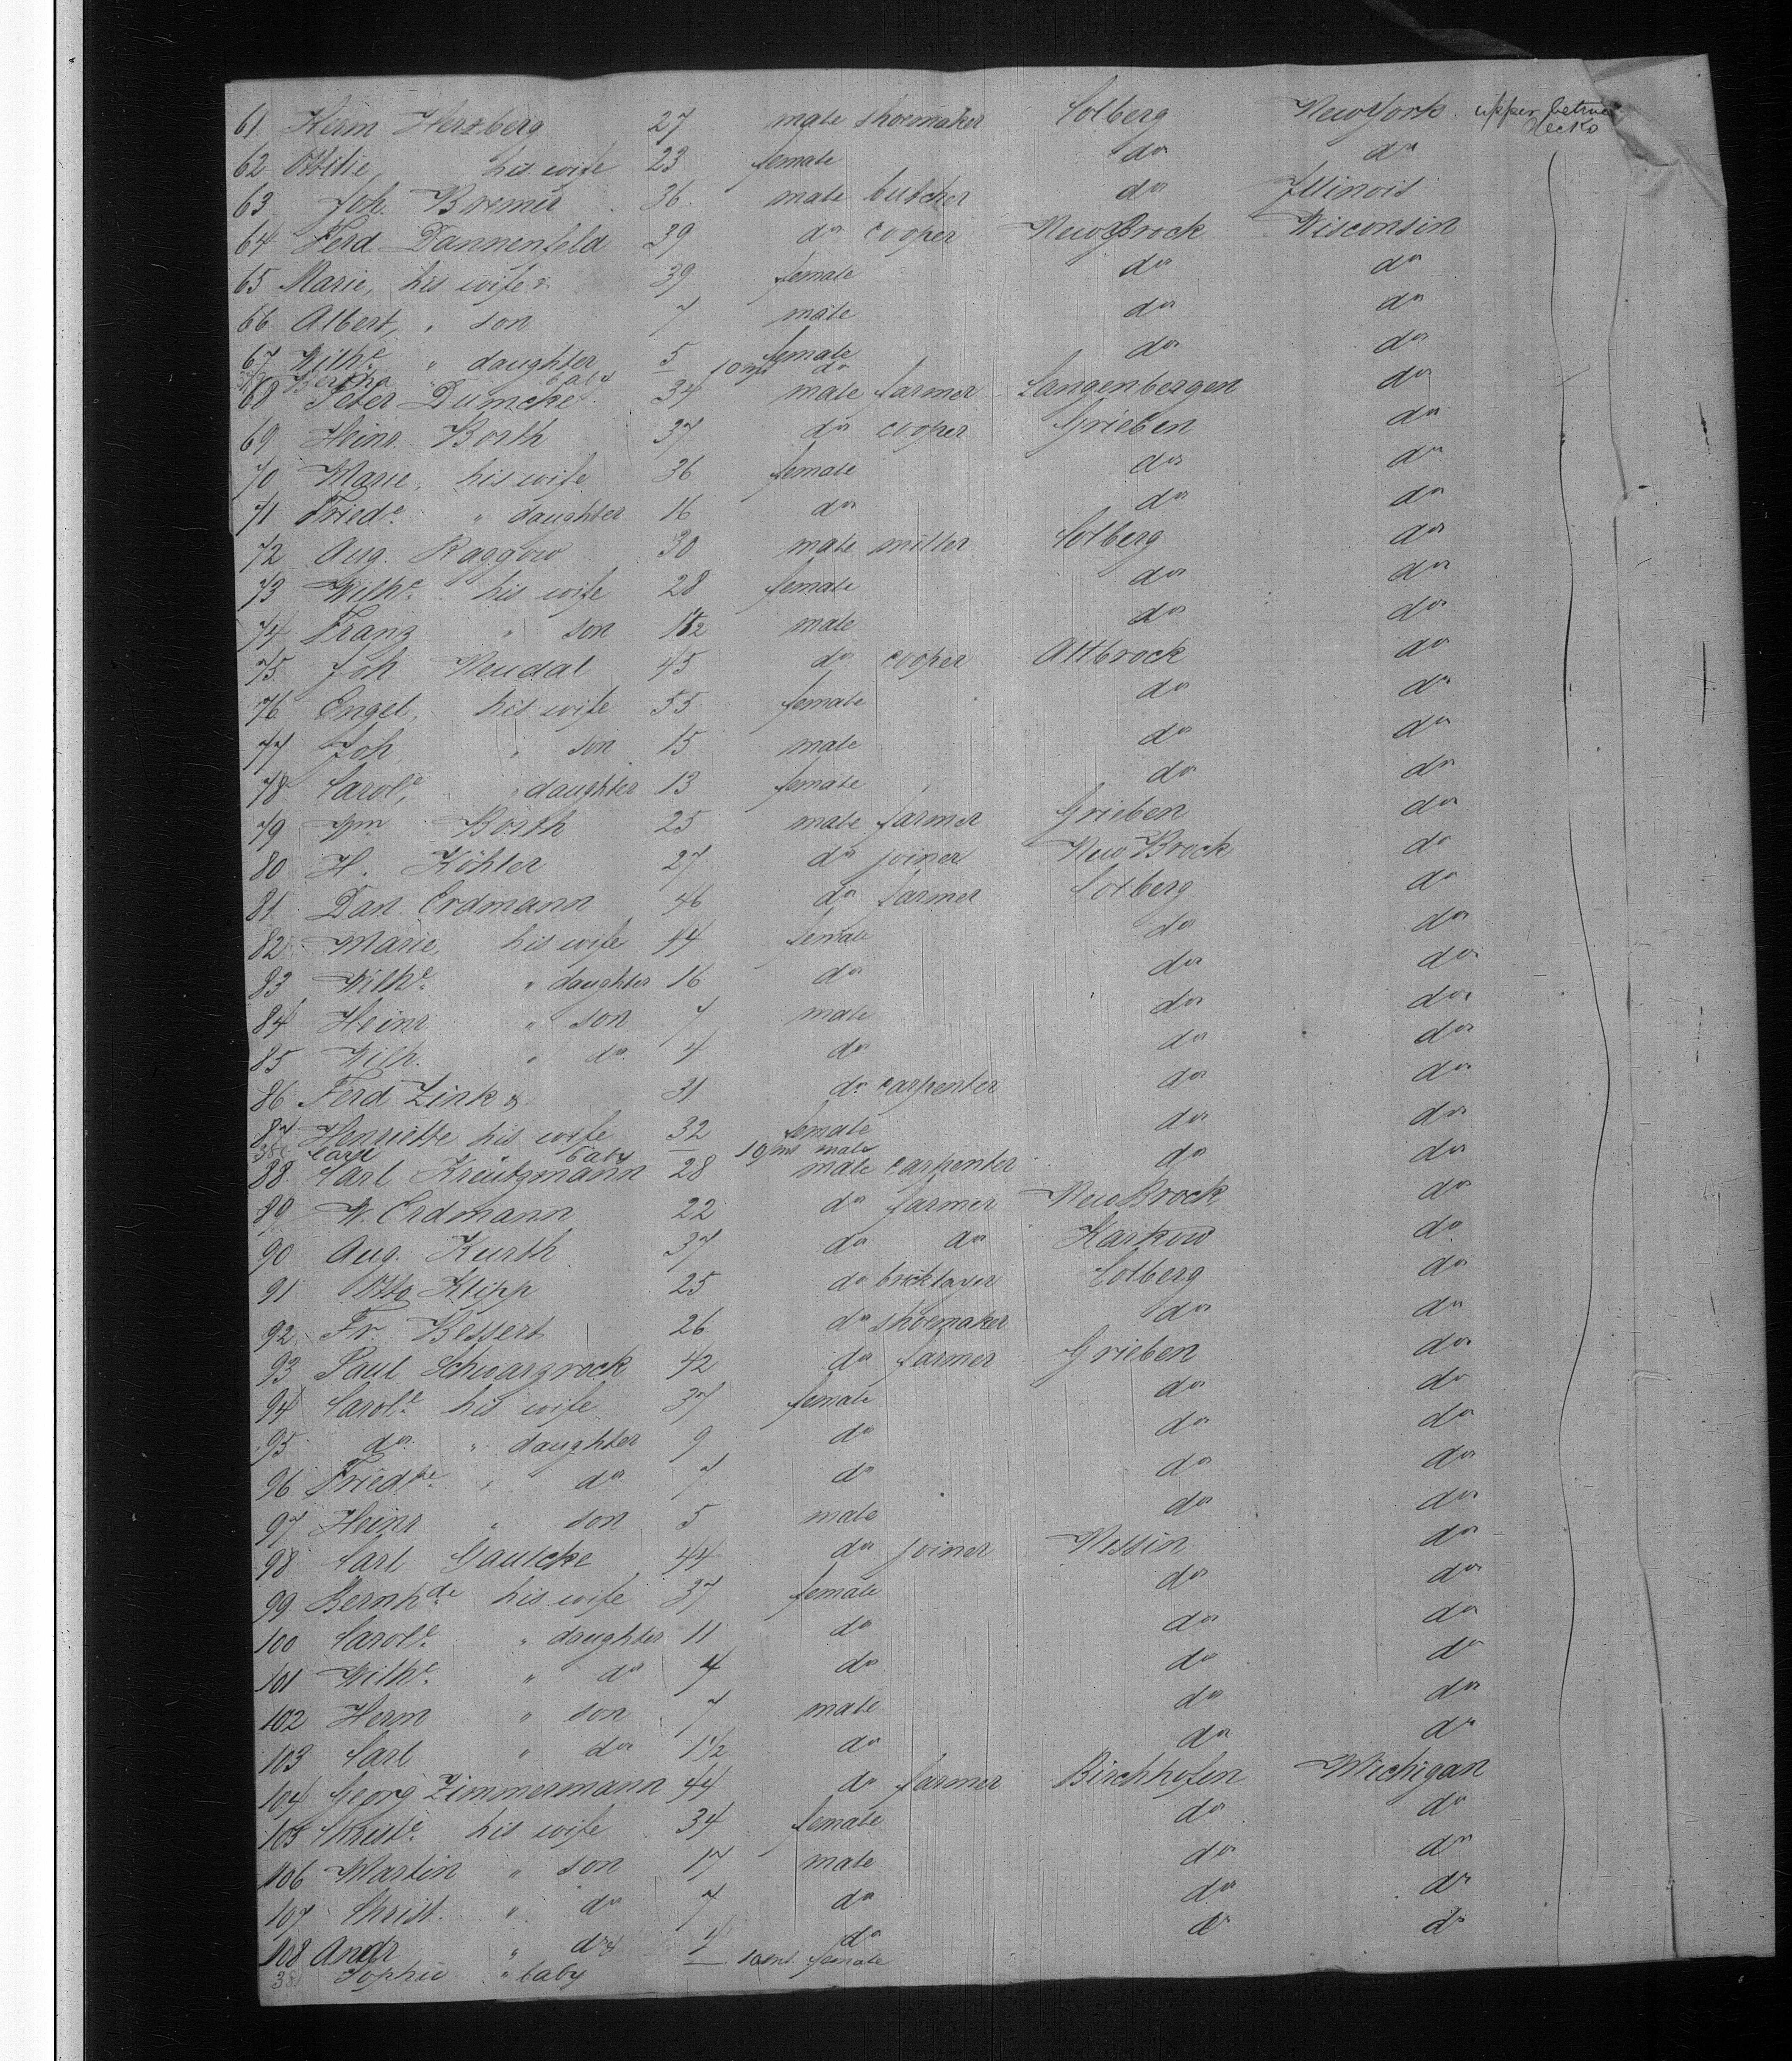 61 Herm Herzberg 27 male shoemaker Colberg New York upper betwe decks
62 Ottilie, his wife 23 female do do
63 Joh. Bremer 36 male butcher do Illinois
64 Ferd. Dannenfeld 39 do cooper New Brock Wisconsin
65 Marie, his wife 39 female do do
66 Albert, " son 7 male do do
67 Wilhe " daughter 5 female do do
Bertha " baby — 10 mt do
68 Peter Dumcke 34 male farmer Langenbergen do
69 Heinr. Borth 37 do cooper Grieben do
70 Marie, his wife 36 female do do
71 Friede " daughter 16 do do do
72 Aug. Raggow 30 male miller Colberg do
73 Wilhe his wife 28 female do do
74 Franz " son 1 1/2 male do do
75 Joh Neudal 45 do cooper Altbrock do
76 Engel, his wife 55 female do do
77 Joh, " son 15 male do do
78 Carole, " daughter 13 female do do
79 Wm Borth 25 male farmer Grieben do
80 H. Köhler 27 do joiner New Brock do
81 Dan. Erdmann 46 do farmer Colberg do
82 Marie, his wife 44 female do do
83 Wilhe " daughter 16 do do do
84 Heinr. " son 7 male do do
85 Wilh. " do 4 do do do
86 Ferd. Zink 31 do carpenter do do
87 Henriette his wife 32 female do do
Carl baby — 10 mt male
88 Carl Kreutzmann 28 male carpenter do do
89 W. Erdmann 22 do farmer New Brock do
90 Aug. Kurth 37 do do Karkow do
91 Otto Klipp 25 do bricklayer Colberg do
92 Fr. Bessert 26 do shoemaker do do
93 Paul Schwarzrock 42 do farmer Grieben do
94 Carole his wife 37 female do do
95 do " daughter 9 do do do
96 Friedke " do 7 do do do
97 Heinr " son 5 male do do
98 Carl Gaulcke 44 do joiner Nessin do
99 Bernhde his wife 37 female do do
100 Carole " daughter 11 do do do
101 Wilhe " do 4 do do do
102 Herm " son 7 male do do
103 Carl " do 1 1/2 do do do
104 Georg Zimmermann 44 do farmer Birchhofen Michigan
105 Christe his wife 34 female do do
106 Martin " son 17 male do do
107 Christ. " do 7 do do do
108 Andr " do 4 do do do
Sophie " baby — 10 mt. female